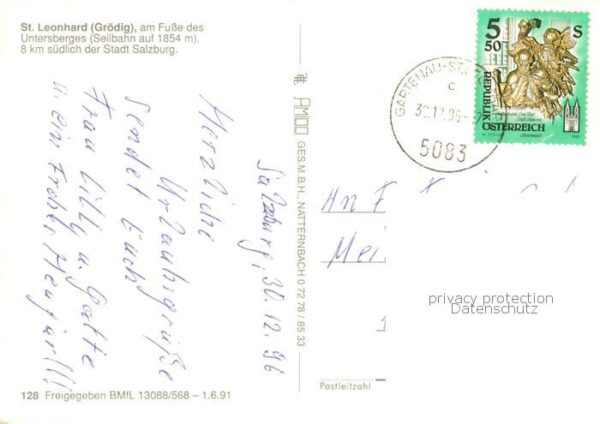 St. Leonhard (Grödig), am Fuße des
Untersberges (Seilbahn auf 1854 m).
8 km südlich der Stadt Salzburg.
Salzburg, 30.12.96
Herzliche
Urlaubsgrüße
sendet Euch
Frau Lilly u. Gatte
u. ein Frohes Neujar!!!
128 Freigegeben BMfL 13088/568 – 1.6.91
AMIDO GES.M.B.H., NATTERNBACH 0 72 78 / 85 33
GARTENAU-ST.
c
30.12.96
5083
5 50 S
REPUBLIK
ÖSTERREICH
An F
Mei
privacy protection
Datenschutz
Postleitzahl